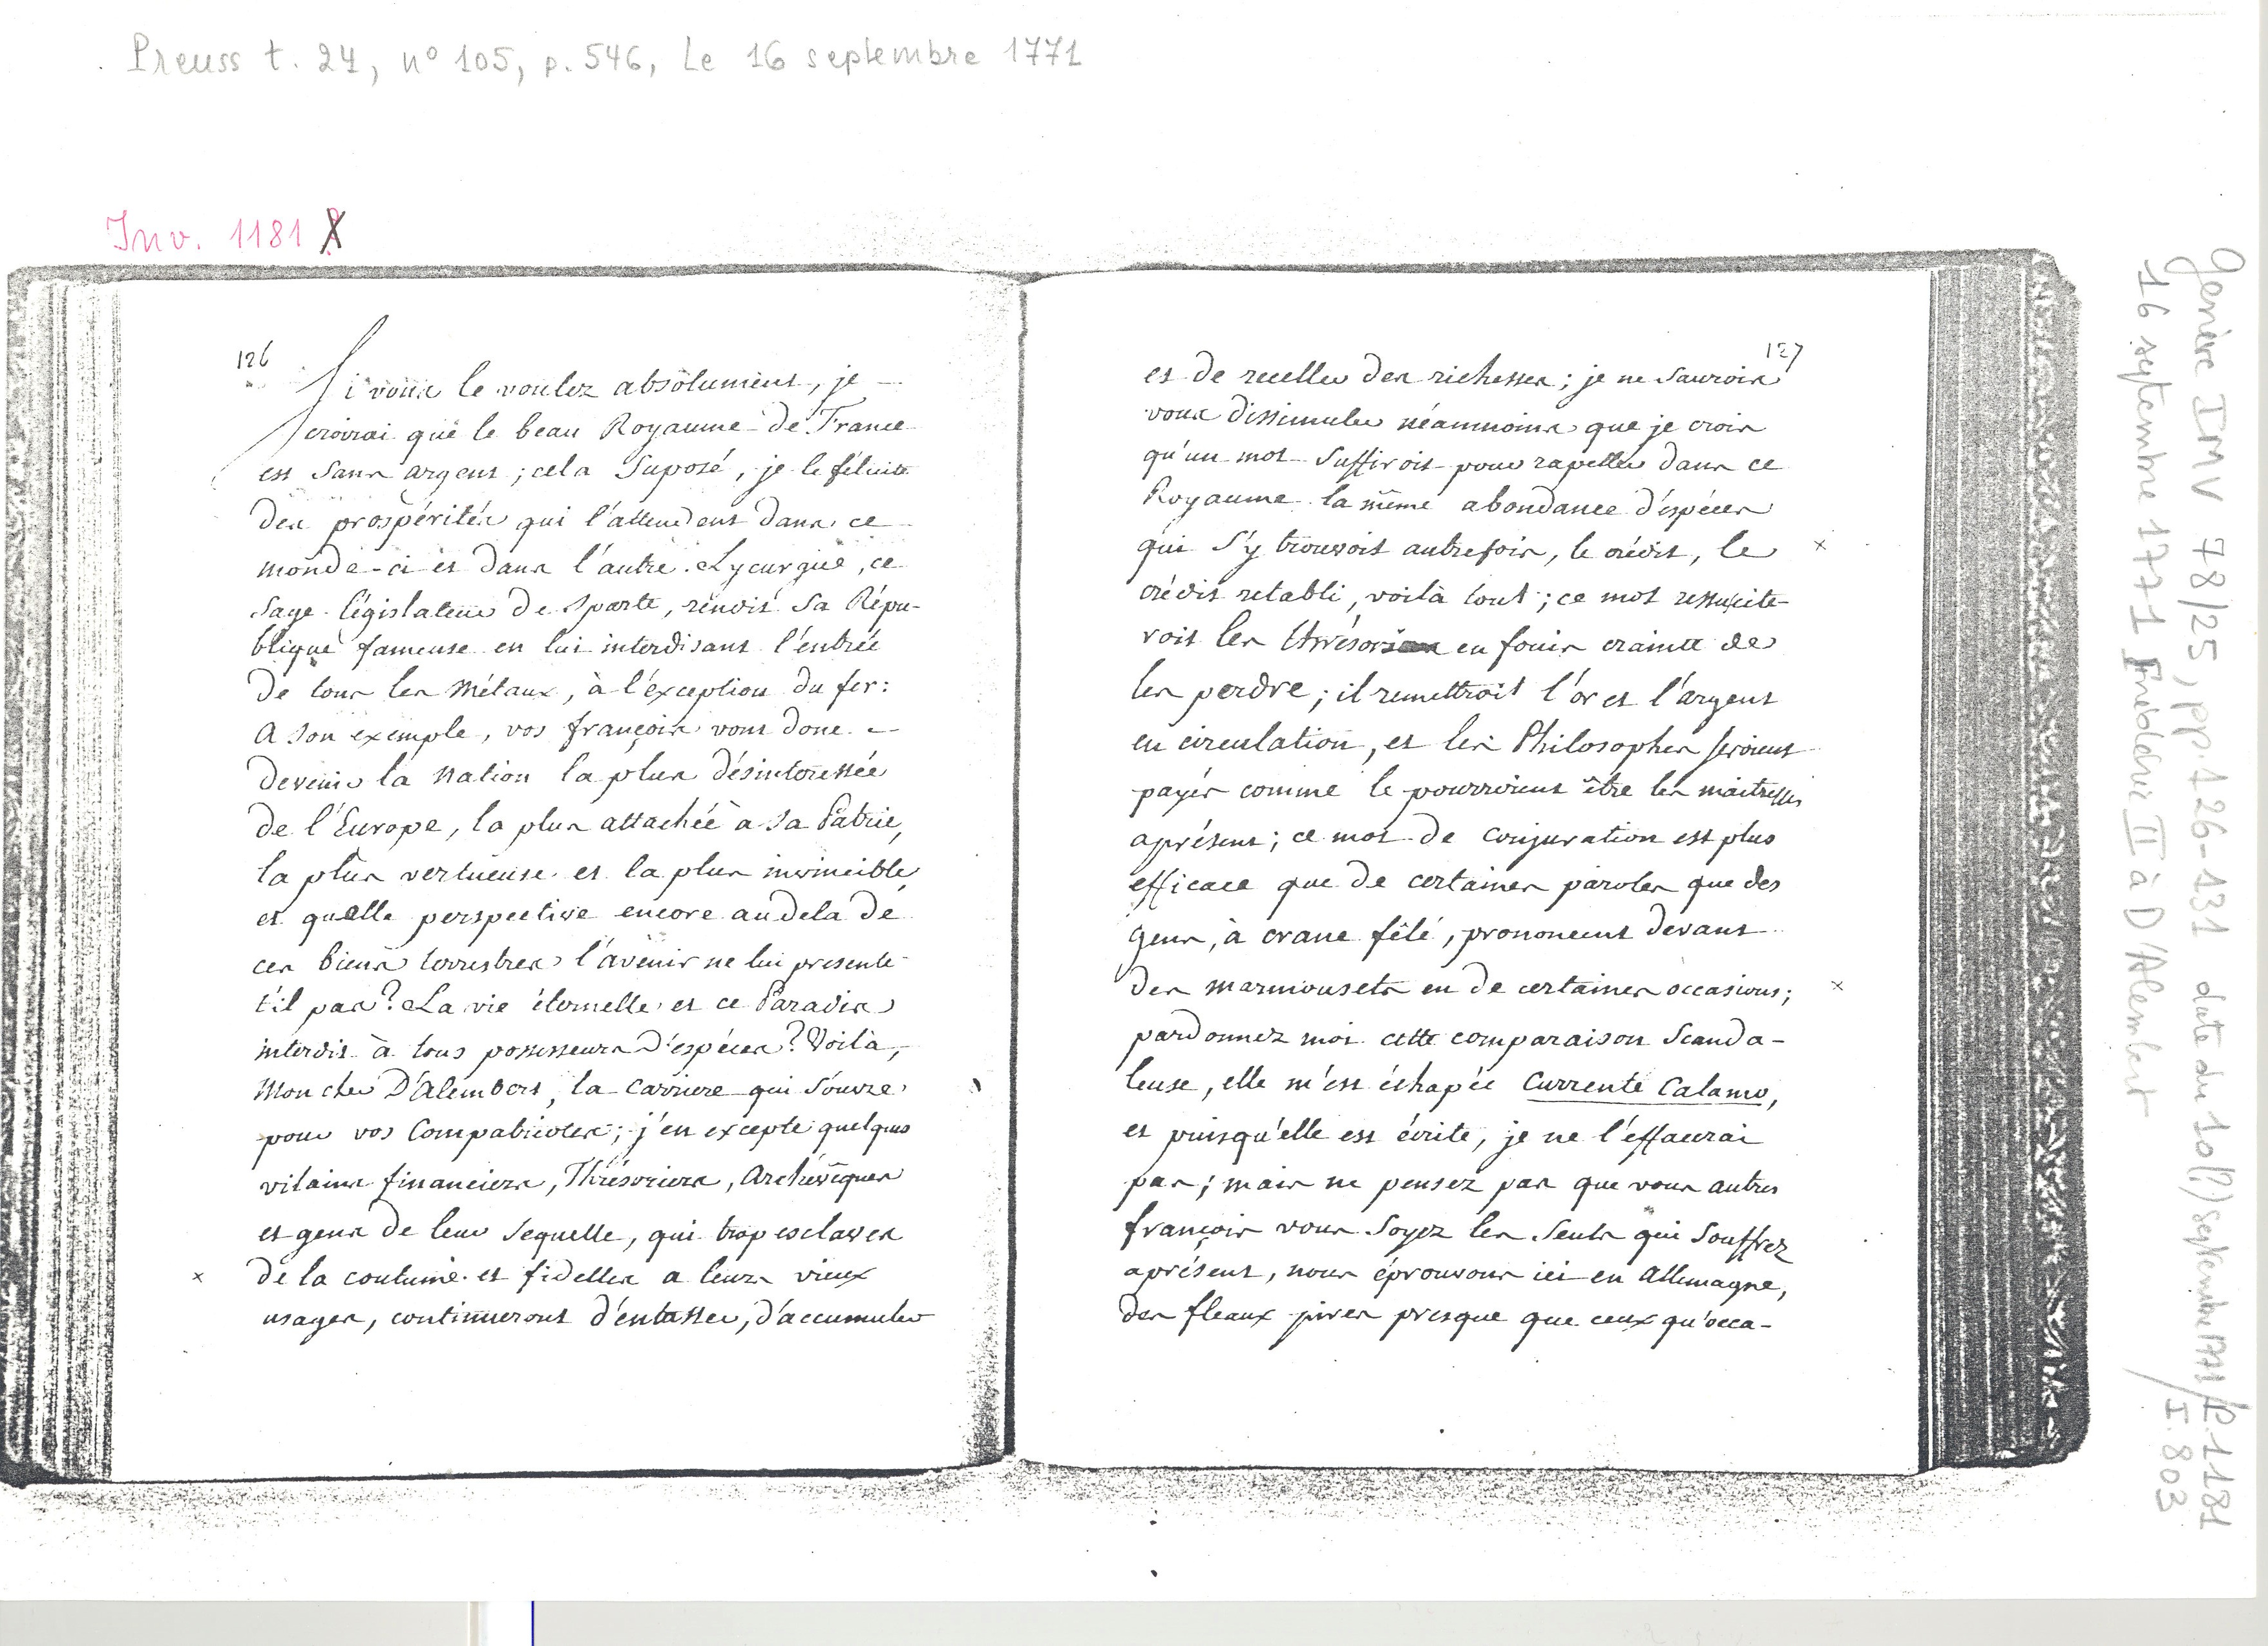 Preuss t. 24, n° 105, p. 546, Le 16 septembre 1771
Inv. 1181
126
Si vous le voulez absolument, je
croirai que le beau Royaume de France
est sans argent ; cela suposé, je le félicite
des prospérités qui l'attendent dans ce
monde-ci et dans l'autre. Lycurgue, ce
sage législateur de Sparte, rendit sa Répu-
blique fameuse en lui interdisant l'entrée
de tous les métaux, à l'exception du fer :
a son exemple, vos françois vont donc
devenir la nation la plus désintéressée
de l'Europe, la plus attachée à sa Patrie,
la plus vertueuse et la plus invincible,
et quelle perspective encore au dela de
ces biens terrestres l'avenir ne lui presente
t'il pas ? La vie éternelle et ce Paradis
interdit à tous possesseurs d'espéces ? Voilà,
Mon cher D'Alembert, la carriere qui s'ouvre
pour vos Compatriotes ; j'en excepte quelques
vilains financiers, Thrésoriers, Archévêques
et gens de leur sequelle, qui trop esclaves
x de la coutume et fidelles a leurs vieux
usages, continueront d'entasser, d'accumuler
127
et de receller des richesses ; je ne saurois
vous dissimuler néamnoins que je crois
qu'un mot suffiroit pour rapeller dans ce
Royaume la même abondance d'espéces
qui s'y trouvoit autrefois, le crédit, le x
crédit retabli, voilà tout ; ce mot ressuscite-
roit les thrésors en fouis crainte de
les perdre ; il remettroit l'or et l'argent
en circulation, et les Philosophes seroient
payés comme le pourroient être les maitresses
aprésent ; ce mot de conjuration est plus
efficace que de certaines paroles que des
gens, à crane fêlé, prononcent devant
des marmousets en de certaines occasions ; x
pardonnez moi cette comparaison scanda-
leuse, elle m'est échapée Currente Calamo,
et puisqu'elle est écrite, je ne l'effacerai
pas ; mais ne pensez pas que vous autres
françois vous soyez les seuls qui souffrez
aprésent, nous éprouvons ici en Allemagne,
des fleaux pires presque que ceux qu'occa-
Genève IMV 78/25, pp. 126-131 date du 10(?) septembre 1771 / P. 1181
16 septembre 1771 Frédéric II à D'Alembert / I. 803